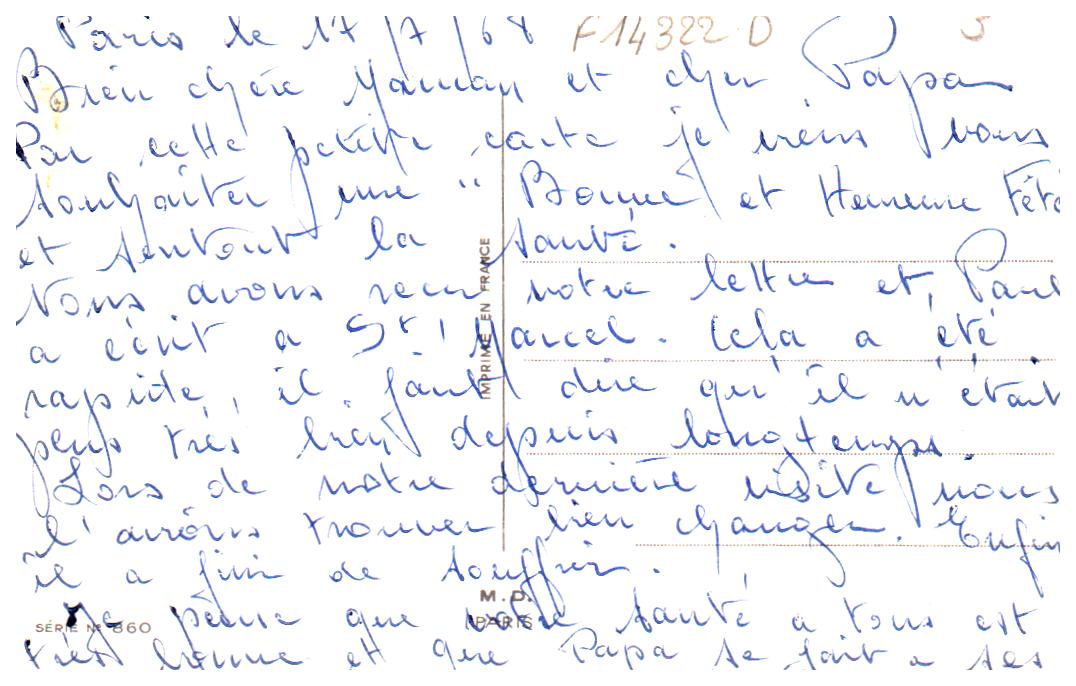 Paris le 17/7/68 F14322 D 5
Bien chère Maman et cher Papa
Par cette petite carte je viens vous
souhaiter une " Bonne et Heureuse Fête
et surtout la santé.
Nous avons reçu votre lettre et, Paul
a écrit a St Marcel. Cela a été
rapide, il faut dire qu'il n'était
plus très bien depuis longtemps.
Lors de notre dernière visite nous
l'avions trouver bien changer. Enfin
il a fini de souffrir.
Je pense que votre santé a tous est
très bonne et que Papa se fait a ses
IMPRIMÉ EN FRANCE
M.D.
PARIS
SÉRIE N° 860